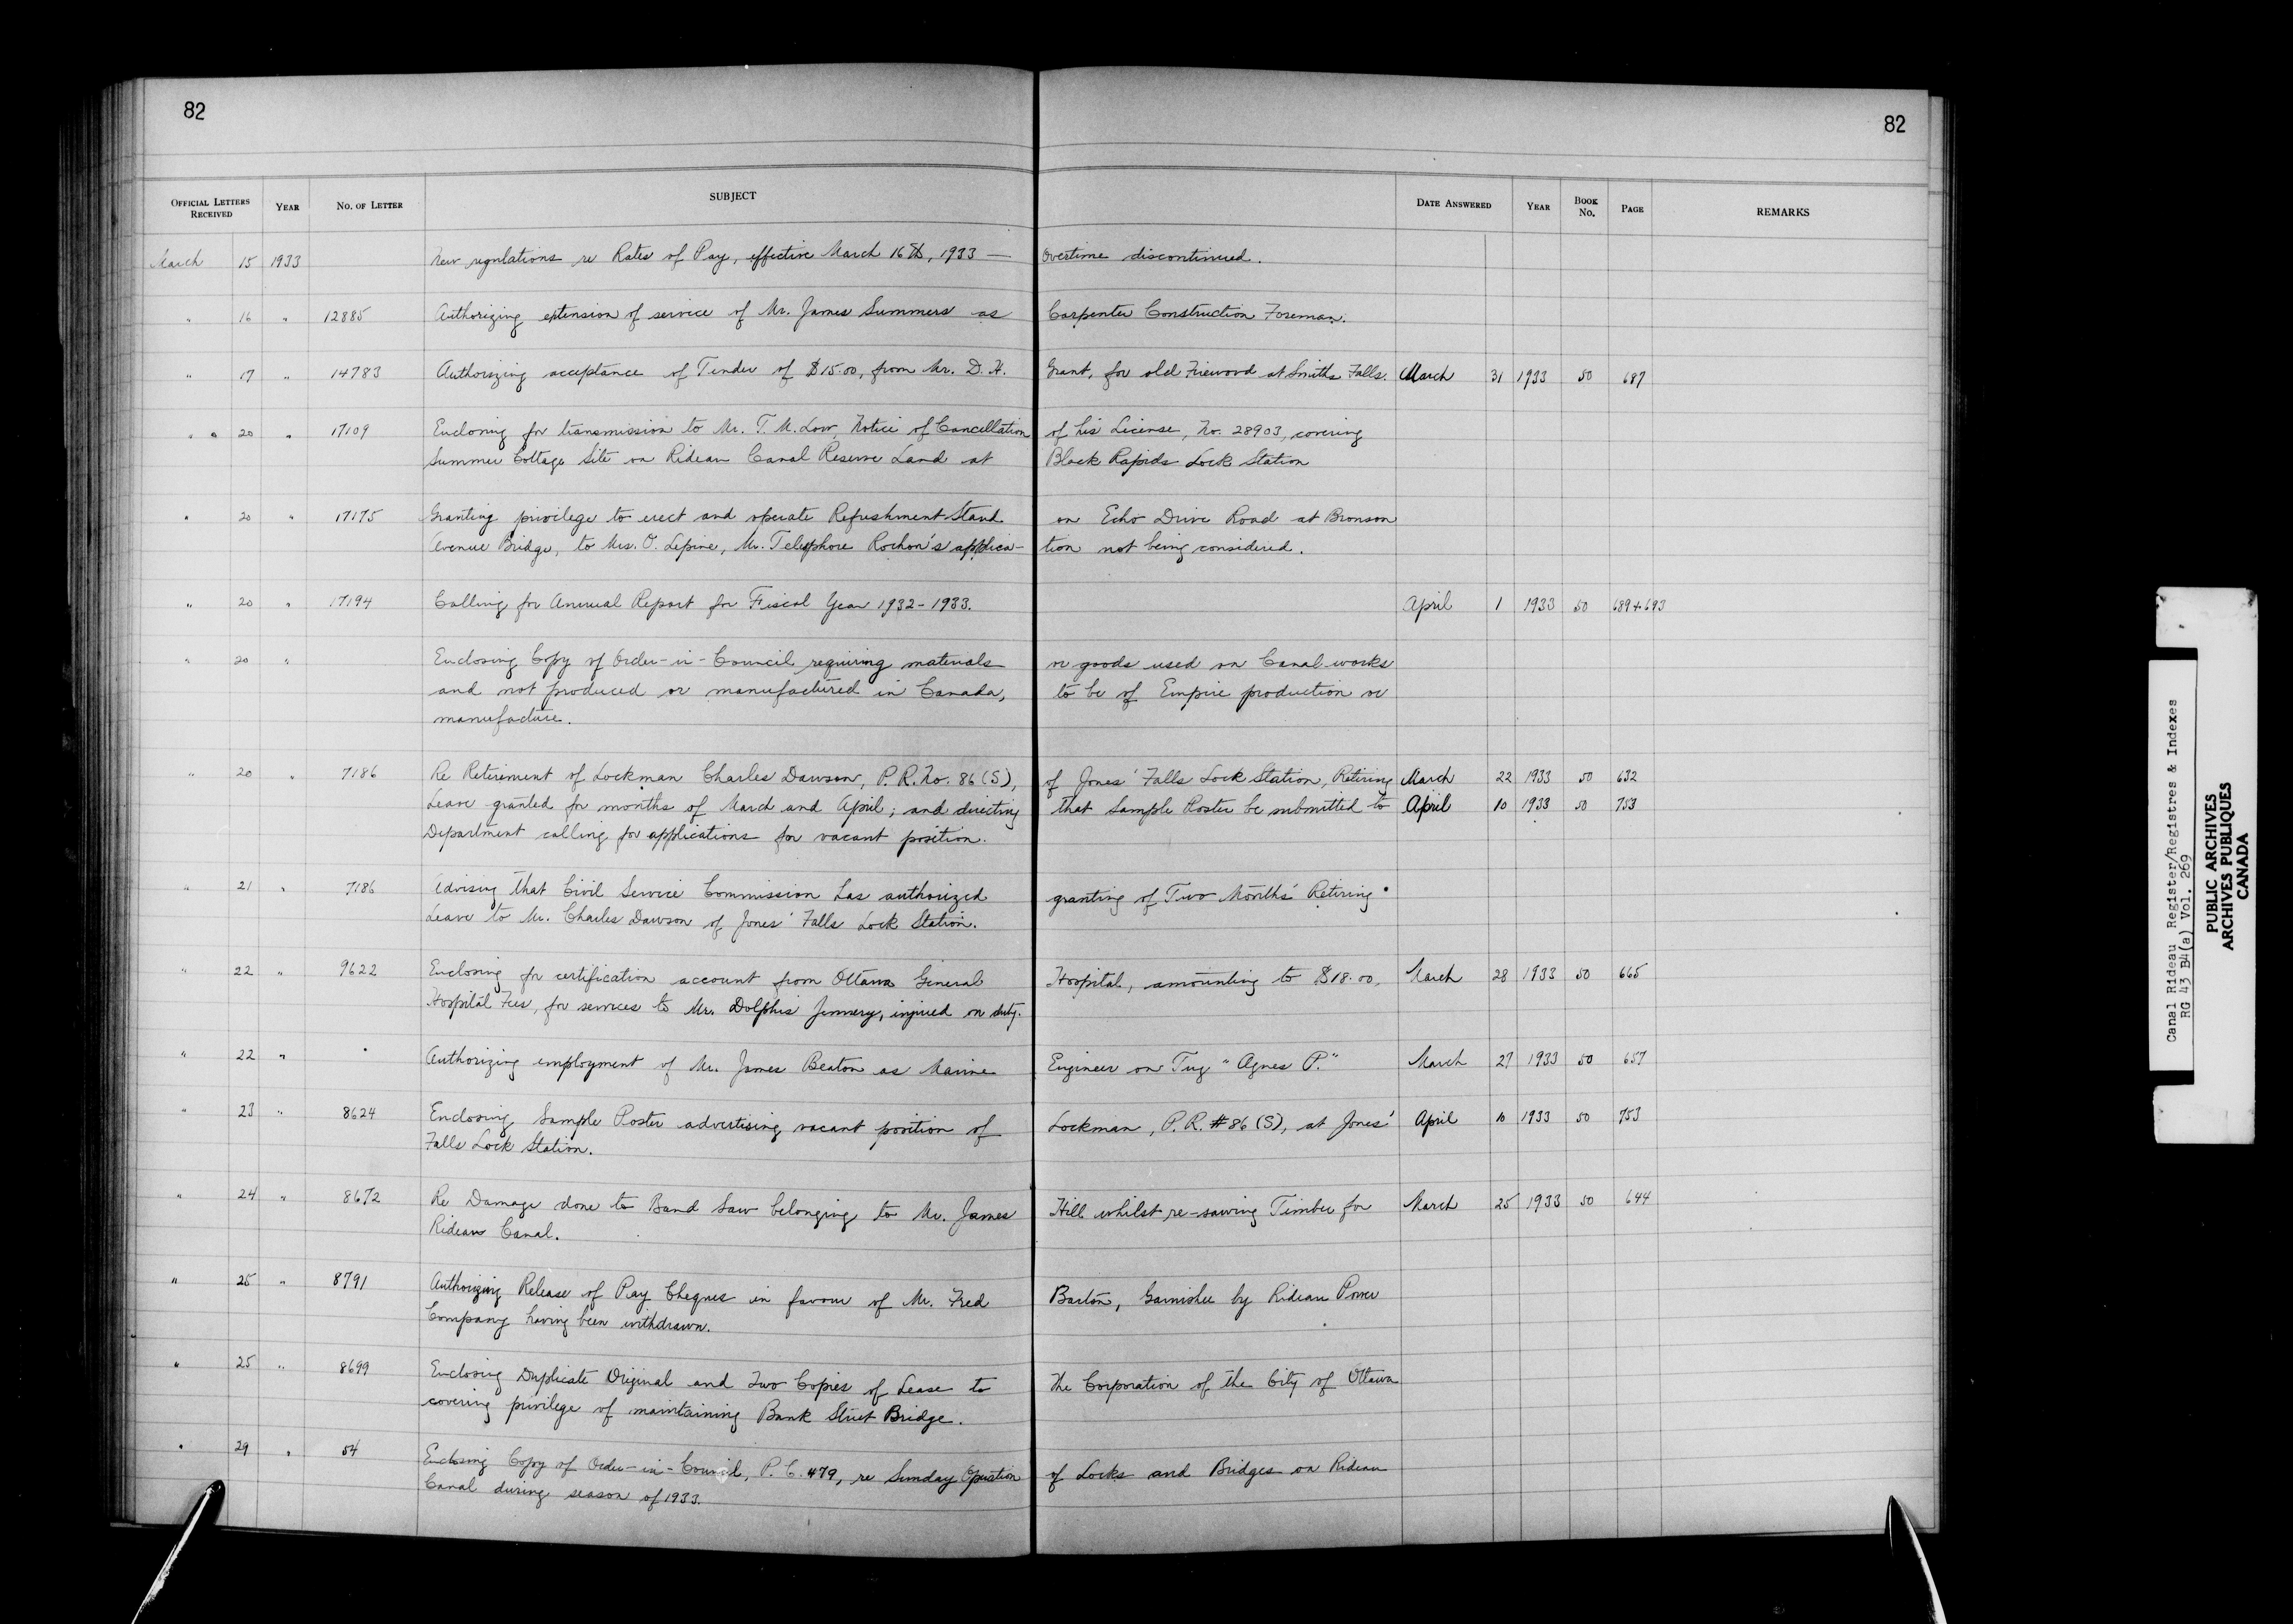 82
82
OFFICIAL LETTERS RECEIVED YEAR NO. OF LETTER SUBJECT DATE ANSWERED YEAR BOOK NO. PAGE REMARKS
March 15 1933 New regulations re Rates of Pay, effective March 16th, 1933 — Overtime discontinued.
" 16 " 12885 Authorizing extension of service of Mr. James Summers as Carpenter Construction Foreman.
" 17 " 14783 Authorizing acceptance of Tender of $15.00, from Mr. D. H. Grant, for old Firewood at Smiths Falls. March 31 1933 50 687
" " 20 " 17109 Enclosing for transmission to Mr. T. M. Low, Notice of Cancellation of his License, No. 28903, covering
Summer Cottage Site on Rideau Canal Reserve Land at Black Rapids Lock Station
" 20 " 17175 Granting privilege to erect and operate Refreshment Stand on Echo Drive Road at Bronson
Avenue Bridge, to Mrs. O. Lepine, Mr. Telesphore Rochon's applica- tion not being considered.
" 20 " 17194 Calling for Annual Report for Fiscal Year 1932-1933. April 1 1933 50 689+693
" 20 " Enclosing Copy of Order-in-Council requiring materials or goods used on Canal works
and not produced or manufactured in Canada, to be of Empire production or
manufacture.
" 20 " 7186 Re Retirement of Lockman Charles Dawson, P.R. No. 86 (S), of Jones' Falls Lock Station, Retiring March 22 1933 50 632
Leave granted for months of March and April; and directing that Sample Poster be submitted to April 10 1933 50 753
Department calling for applications for vacant position.
" 21 " 7186 Advising that Civil Service Commission has authorized granting of Two Months' Retiring
Leave to Mr. Charles Dawson of Jones' Falls Lock Station.
" 22 " 9622 Enclosing for certification account from Ottawa General Hospital, amounting to $18.00, March 28 1933 50 665
Hospital Fees, for services to Mr. Dolphis Jemmery, injured on duty.
" 22 " Authorizing employment of Mr. James Beaton as Marine Engineer on Tug "Agnes P." March 27 1933 50 657
" 23 " 8624 Enclosing Sample Poster advertising vacant position of Lockman, P.R. #86 (S), at Jones' April 10 1933 50 753
Falls Lock Station.
" 24 " 8672 Re Damage done to Band Saw belonging to Mr. James Hill whilst re-sawing Timber for March 25 1933 50 644
Rideau Canal.
" 25 " 8791 Authorizing Release of Pay Cheques in favour of Mr. Fred Barton, Garnishee by Rideau Power
Company having been withdrawn.
" 25 " 8699 Enclosing Duplicate Original and Two Copies of Lease to The Corporation of the City of Ottawa
covering privilege of maintaining Bank Street Bridge.
" 29 " 54 Enclosing Copy of Order-in-Council, P.C. 479, re Sunday Operation of Locks and Bridges on Rideau
Canal during season of 1933.
Canal Rideau Register/Registres & Indexes
RG 43 B4(a) Vol. 269
PUBLIC ARCHIVES
ARCHIVES PUBLIQUES
CANADA